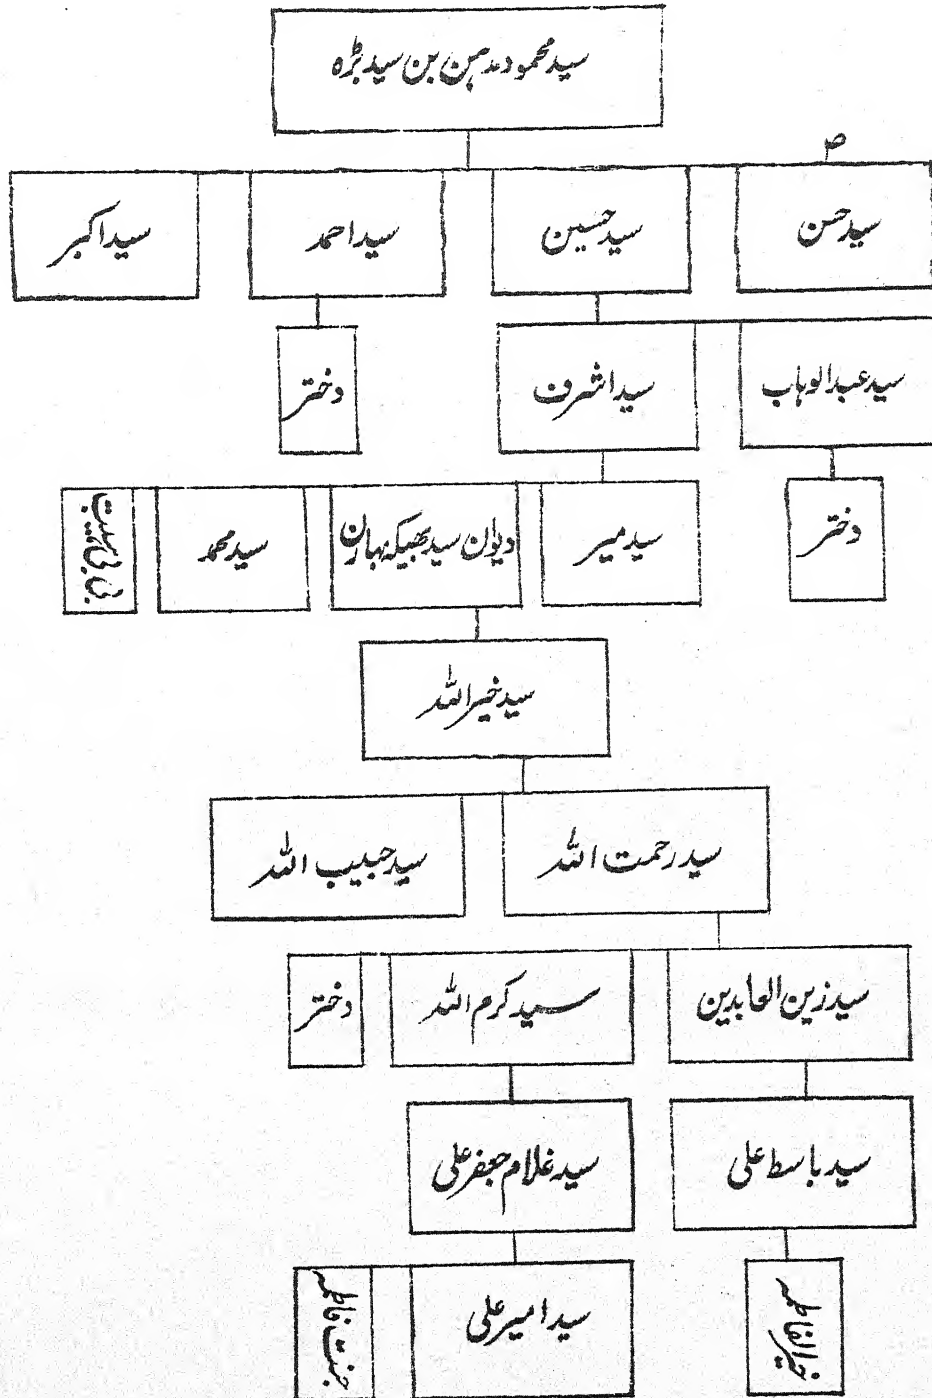 سید محمود مدہن بن سید بڑہ
ص
سید حسن
سید حسین
سید احمد
سید اکبر
سید عبدالوہاب
سید اشرف
دختر
دختر
سید میر
دیوان سید بھیکہ بہارن
سید محمد
بی بی
سید خیر اللہ
سید رحمت اللہ
سید حبیب اللہ
سید زین العابدین
سید کرم اللہ
دختر
سید باسط علی
سید غلام جعفر علی
خیر الفاطمہ
سید امیر علی
جنت فاطمہ